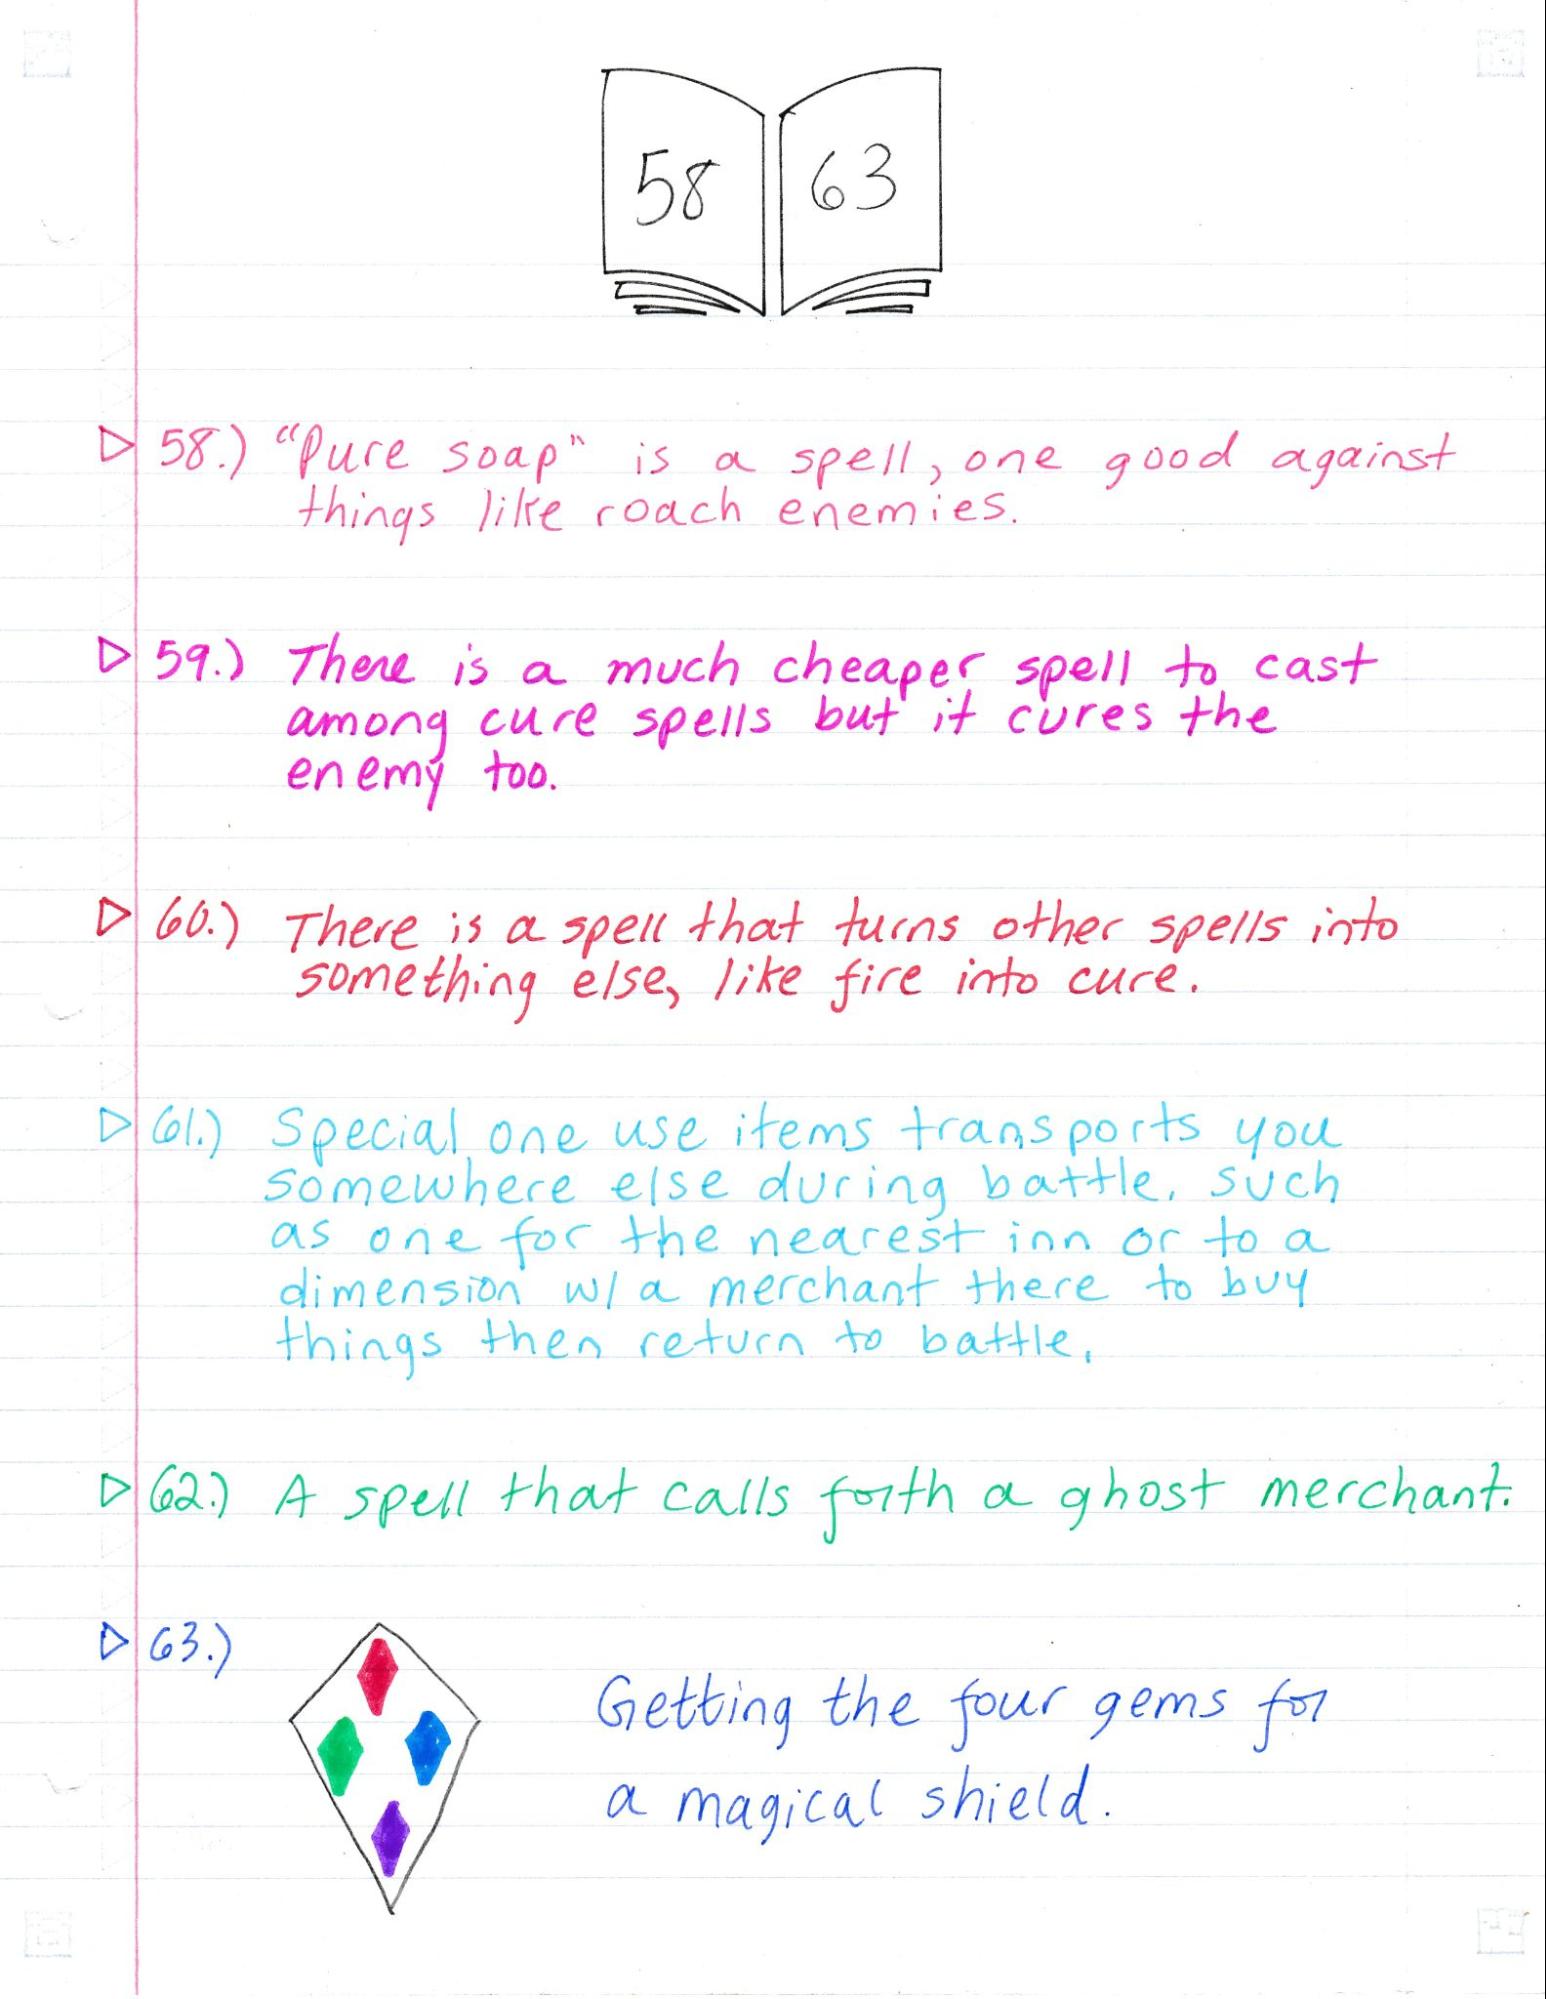 58 63
58.) "Pure soap" is a spell, one good against
things like roach enemies.
59.) There is a much cheaper spell to cast
among cure spells but it cures the
enemy too.
60.) There is a spell that turns other spells into
something else, like fire into cure.
61.) Special one use items transports you
somewhere else during battle, such
as one for the nearest inn or to a
dimension w/ a merchant there to buy
things then return to battle.
62.) A spell that calls forth a ghost merchant.
63.)
Getting the four gems for
a magical shield.